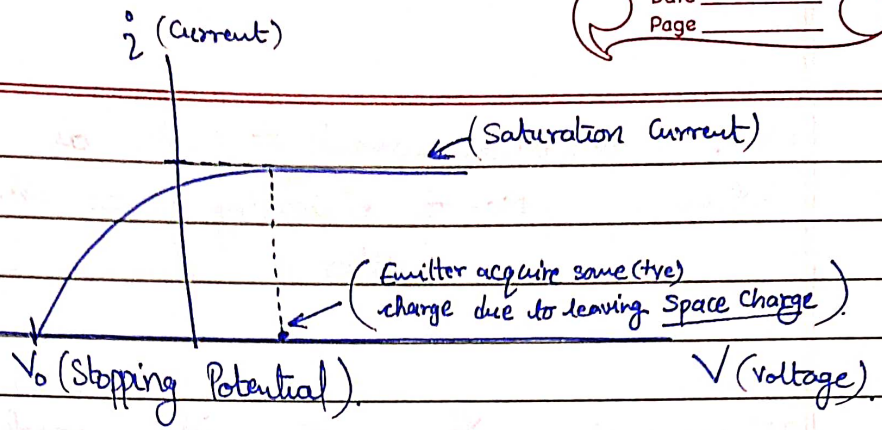 Page
i (Current)
(Saturation Current)
(Emitter acquire some (+ve)
charge due to leaving Space Charge).
V₀ (Stopping Potential).
V (voltage).